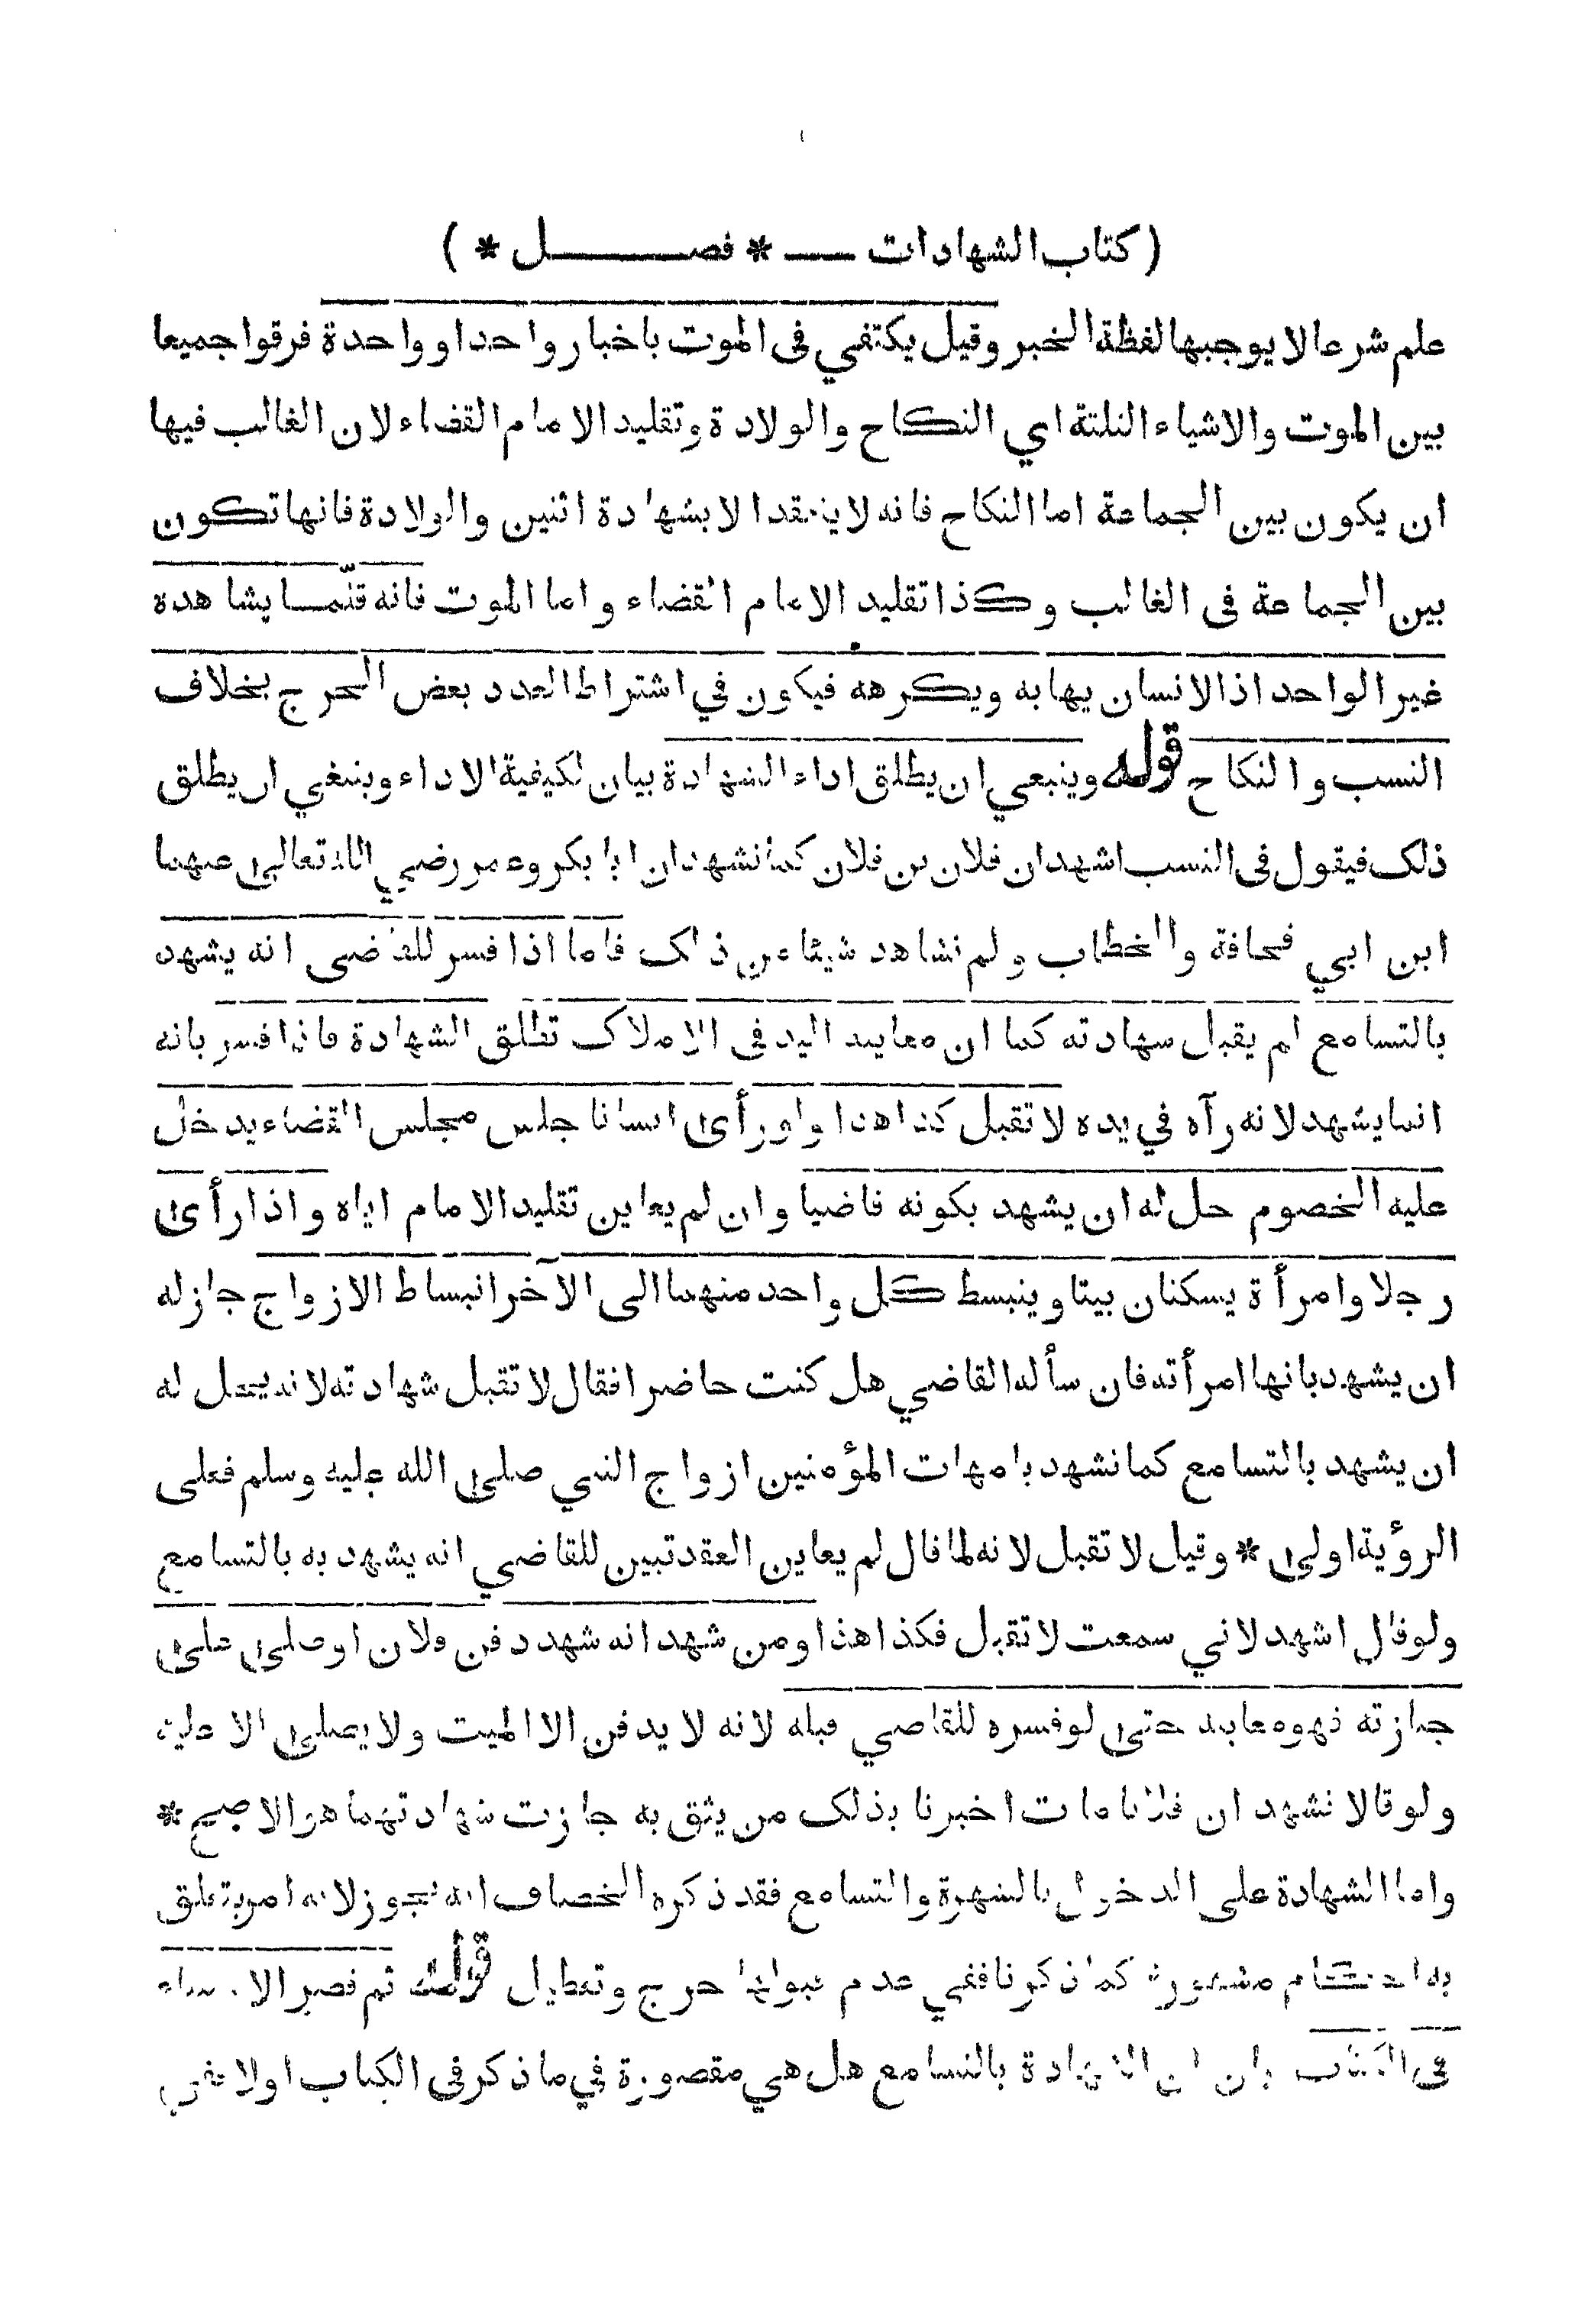 ( كتاب الشهادات — * فصل * )
علم شرعا لا يوجبها لفظة الخبر وقيل يكتفي فى الموت باخبار واحد او واحدة فرقوا جميعا
بين الموت والاشياء الثلثة اي النكاح والولادة وتقليد الامام القضاء لان الغالب فيها
ان يكون بين الجماعة اما النكاح فانه لا ينعقد الا بشهادة اثنين والولادة فانها تكون
بين الجماعة فى الغالب وكذا تقليد الامام القضاء واما الموت فانه قلّما يشاهده
غير الواحد اذ الانسان يهابه ويكرهه فيكون في اشتراط العدد بعض الحرج بخلاف
النسب والنكاح قوله وينبغي ان يطلق اداء الشهادة بيان لكيفية الاداء وينبغي ان يطلق
ذلك فيقول فى النسب اشهد ان فلان بن فلان كما نشهد ان ابا بكر وعمر رضي الله تعالى عنهما
ابن ابي قحافة والخطاب ولم نشاهد شيئا من ذلك فاما اذا فسر للقاضى انه يشهد
بالتسامع لم يقبل شهادته كما ان معاينه اليد فى الاملاك تطلق الشهادة فاذا فسر بانه
انما يشهد لانه رآه في يده لا تقبل كذا هذا ولو رأى انسانا جلس مجلس القضاء يدخل
عليه الخصوم حل له ان يشهد بكونه قاضيا وان لم يعاين تقليد الامام اياه واذا رأى
رجلا وامرأة يسكنان بيتا وينبسط كل واحد منهما الى الآخر انبساط الازواج جاز له
ان يشهد بانها امرأته فان سأله القاضي هل كنت حاضرا فقال لا تقبل شهادته لانه يحل له
ان يشهد بالتسامع كما نشهد بامهات المؤمنين ازواج النبي صلى الله عليه وسلم فعلى
الرؤية اولى * وقيل لا تقبل لانه لما قال لم يعاين العقد تبين للقاضي انه يشهد به بالتسامع
ولو قال اشهد لاني سمعت لا تقبل فكذا هذا ومن شهد انه شهد دفن فلان او صلى على
جنازته فهو معاينه حتى لو فسره للقاضي قبله لانه لا يدفن الا الميت ولا يصلى الا عليه
ولو قالا نشهد ان فلانا مات اخبرنا بذلك من يثق به جازت شهادتهما هو الاصح *
واما الشهادة على الدخول بالشهرة والتسامع فقد ذكره الخصاف انه يجوز لانه امر يتعلق
به احكام مشهورة كما ذكرنا ففي عدم قبولها حرج وتعطيل قوله ثم قصر الاستثناء
فى الكتاب ان الشهادة بالتسامع هل هي مقصورة في ما ذكر فى الكتاب اولا